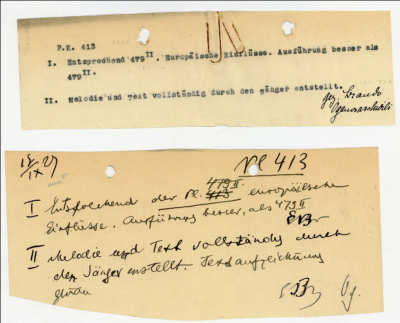 P.K. 413
I. Entsprechend 479 II. Europäische Einflüsse. Ausführung besser als
479 II.
II. Melodie und Text vollständig durch den Sänger entstellt.
gez. Brandl
15/IX 27
Pl 413
I Entsprechend der Pl. 479 II europäische
Einflüsse. Ausführung besser, als 479 II
II Melodie und Text vollständig durch
den Sänger enstellt. Textaufzeichnung